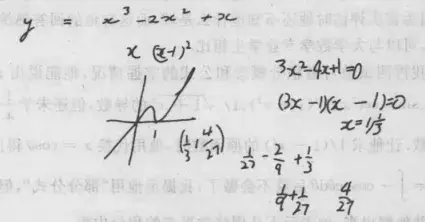 y = x³ - 2x² + x
x (x-1)²
3x² - 4x + 1 = 0
(3x - 1)(x - 1) = 0
x = 1 1/3
1
(1/3, 4/27)
1/27 - 2/9 + 1/3
1/9 + 1/27 4/27